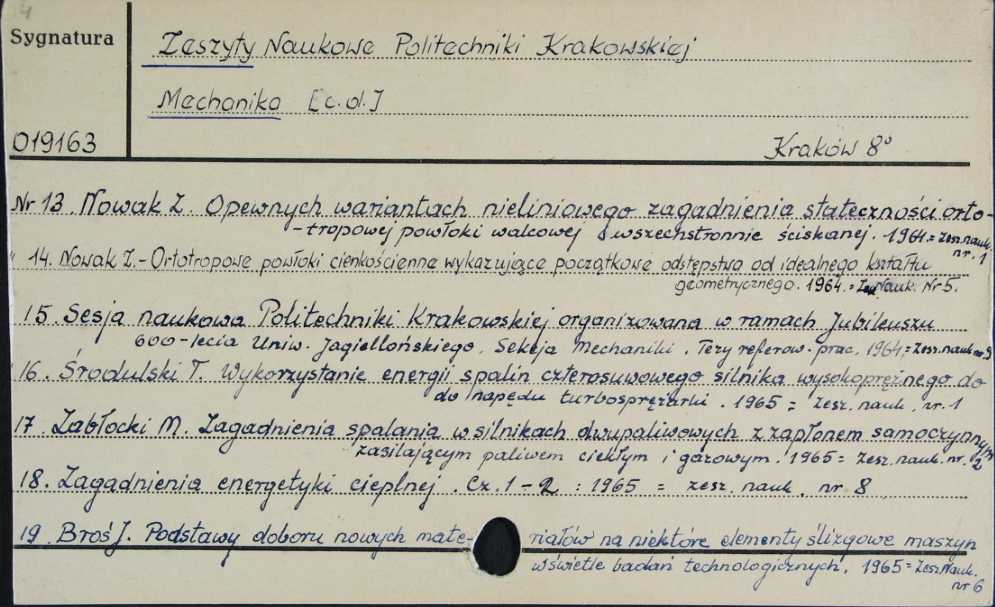 Sygnatura
Zeszyty Naukowe Politechniki Krakowskiej
Mechanika [c.d.]
019163
Kraków 8°
Nr 13. Nowak Z. Opewnych wariantach nieliniowego zagadnienia stateczności orto-
-tropowej powłoki walcowej wszechstronnie ściskanej. 1964 = Zesz.nauk.
nr. 1
" 14. Nowak Z. - Ortotropowe powłoki cienkościenne wykazujące początkowe odstępstwa od idealnego kształtu
geometrycznego. 1964. = Zesz Nauk. Nr 5.
15. Sesja naukowa Politechniki Krakowskiej organizowana w ramach Jubileuszu
600-lecia Uniw. Jagiellońskiego. Sekcja Mechaniki. Tezy referow. prac. 1964 = Zesz.nauk nr 9
16. Środulski T. Wykorzystanie energii spalin czterosuwowego silnika wysokoprężnego do
do napędu turbosprężarki. 1965 = zesz. nauk. nr. 1
17. Zabłocki M. Zagadnienia spalania w silnikach dwupaliwowych z zapłonem samoczynnym
zasilającym paliwem ciekłym i gazowym. 1965 = zesz. nauk. nr. 2
18. Zagadnienia energetyki cieplnej. Cz. 1-2 : 1965 = zesz. nauk. nr 8
19. Broś J. Podstawy doboru nowych mate- riałów na niektóre elementy ślizgowe maszyn
w świetle badań technologicznych. 1965 = Zesz.Nauk.
nr 6